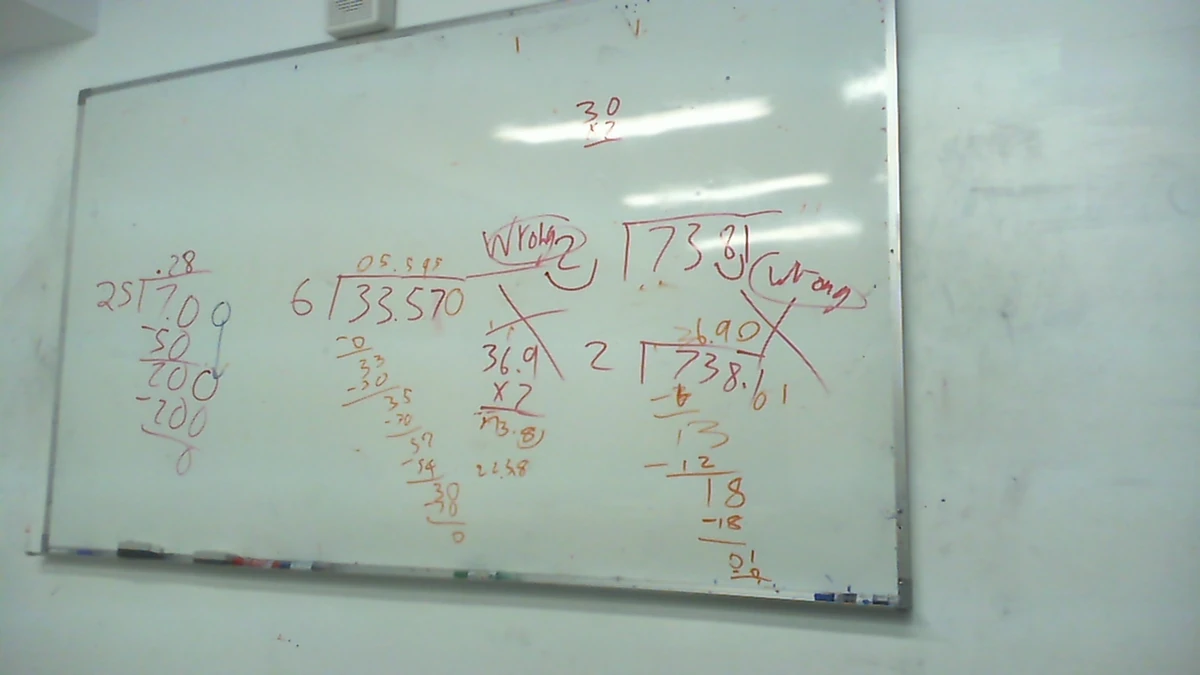 30
x2
.28
25 7.00
-50
200
-200
0
05.595
6 33.570
-0
33
-30
35
57
-54
30
0
Wrong
36.9
x2
73.8
2 738
Wrong
36.90
2 738.1
-6
13
-12
18
-18
01